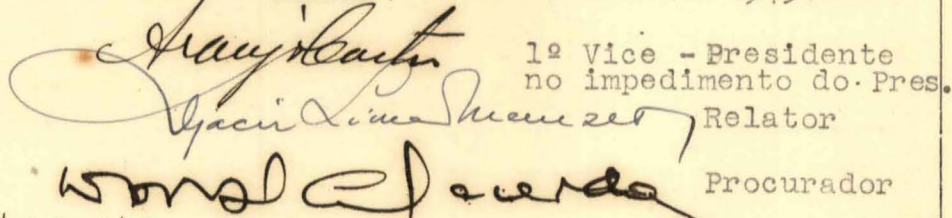 Araujo Castro 1º Vice - Presidente
no impedimento do Pres.
Djacir Lima Menezes Relator
Lacerda Procurador